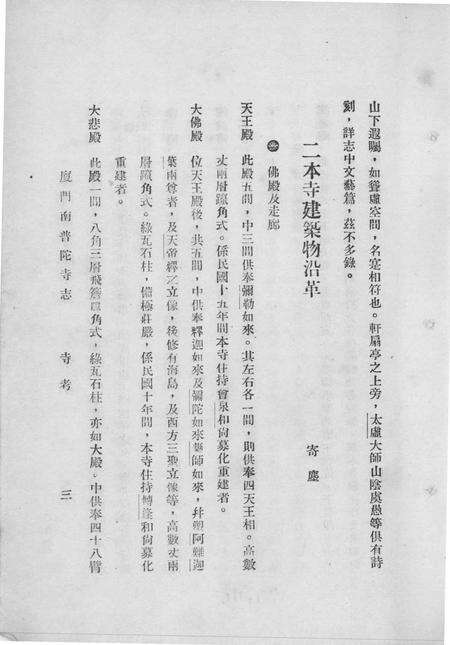 山下遐矚,如聳虛空間,名寔相符也。軒扁亭之上旁,太虛大師山陰虞愚等俱有詩
刻,詳志中文藝篇,茲不多錄。
二本寺建築物沿革
寄塵
佛殿及走廊
天王殿 此殿五間,中三間供奉彌勒如來。其左右各一間,則供奉四天王相。高數
丈兩層疏角式。係民國十五年間本寺住持會泉和尚募化重建者。
大佛殿 位天王殿後,共五間,中供奉釋迦如來及彌陀如來藥師如來,幷塑阿難迦
葉兩尊者,及天帝釋乙立像,後修有海島,及西方三聖立像等,高數丈兩
層疏角式。綠瓦石柱,備極莊嚴,係民國十年間,本寺住持轉逢和尚募化
重建者。
大悲殿 此殿一間,八角三層飛簷疏角式,綠瓦石柱,亦如大殿。中供奉四十八臂
廈門南普陀寺志 寺考 三